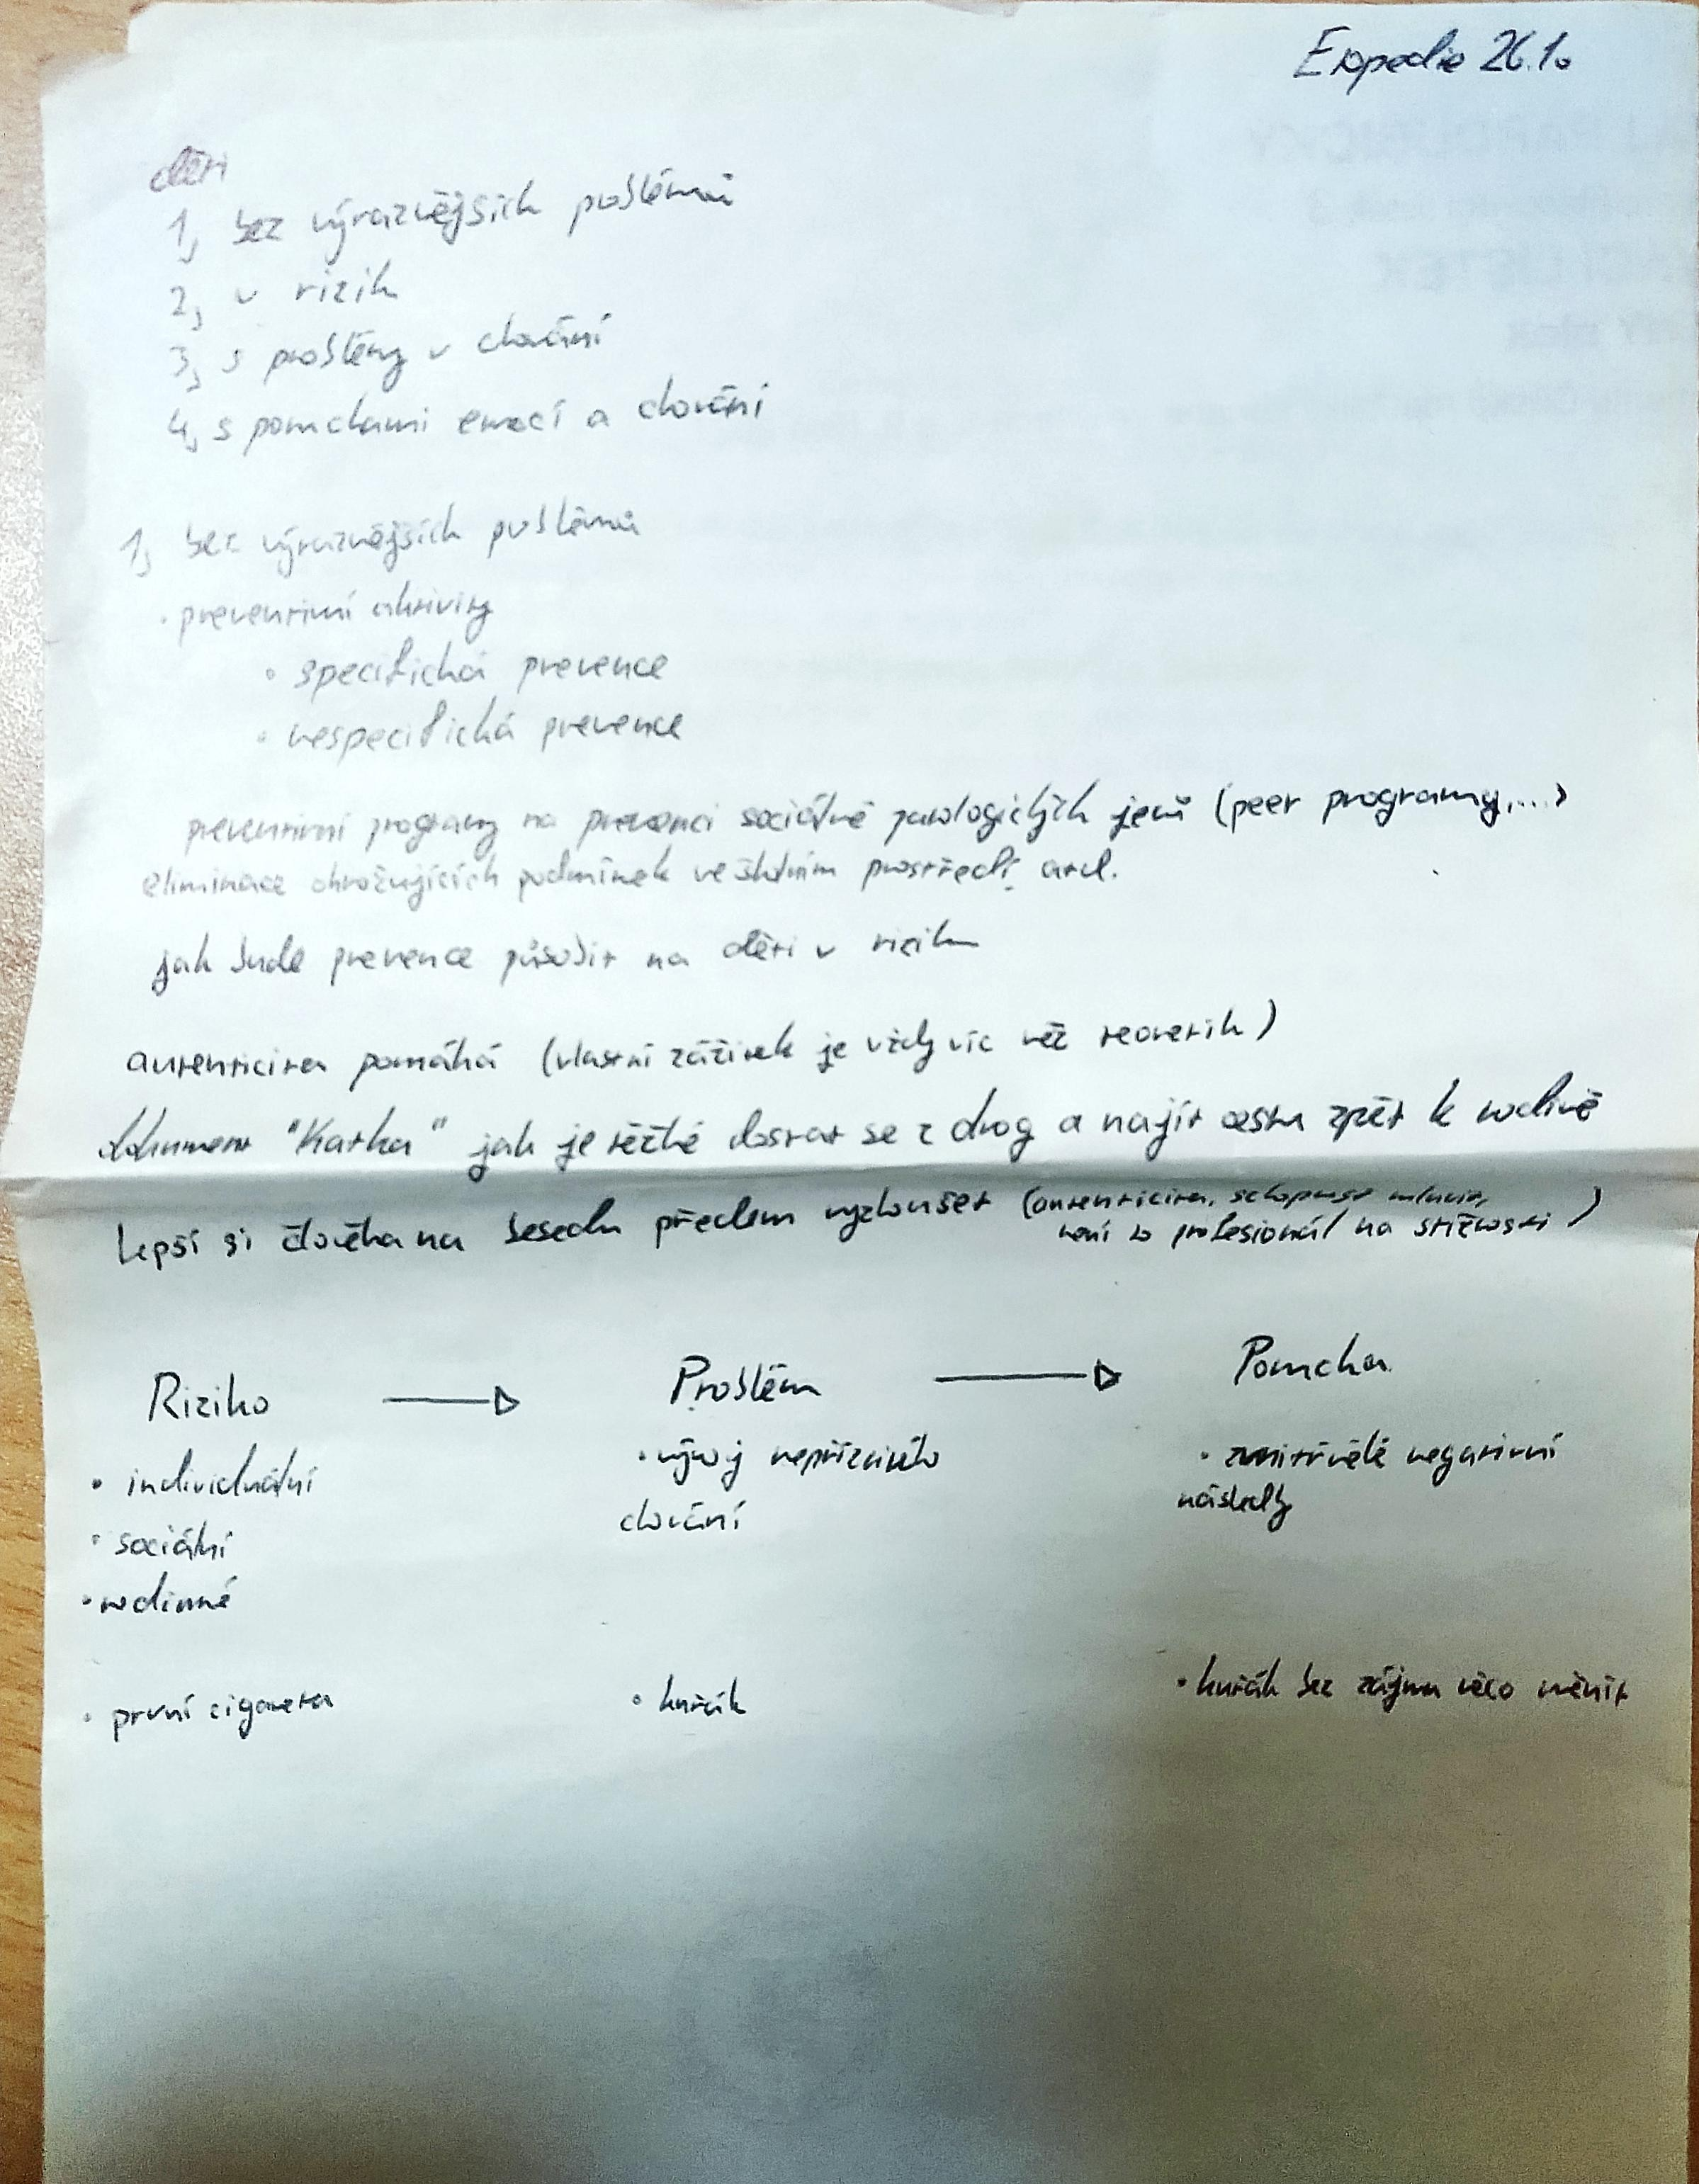 Etopedie 26.1.
děti
1, bez výraznějších problémů
2, v rizik
3, s problémy v chování
4, s poruchami emocí a chování
1, bez výraznějších problémů
• preventivní aktivity
• specifická prevence
• nespecifická prevence
preventivní programy na prevenci sociálně patologických jevů (peer programy,...)
eliminace ohrožujících podmínek ve školním prostředí, atd.
jak bude prevence působit na děti v riziku
autenticita pomáhá (vlastní zážitek je vždy víc než teoretik)
dokument "Katka" jak je těžké dostat se z drog a najít cestu zpět k rodině
Lepší si člověka na besedu předem vyzkoušet (autenticita, schopnost mluvit,
není to profesionál na stížnosti)
Riziko → Problém → Porucha
• individuální • vývoj nepříznivého • zanitřnělé negativní
chování následky
• sociální
• rodinné
• první cigareta • kuřák • kuřák bez zájmu něco měnit